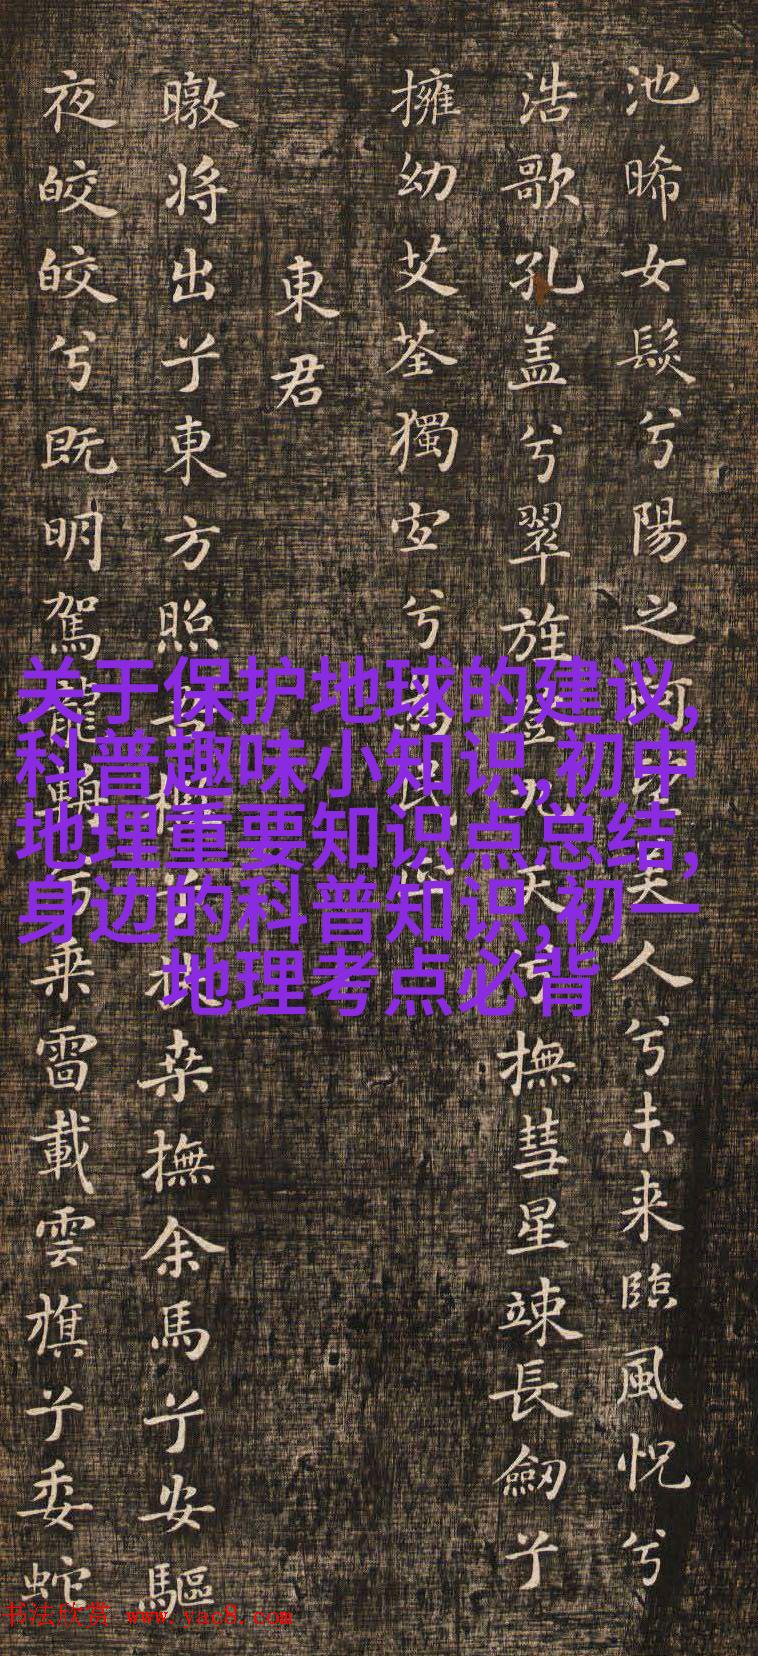 池晞女髮兮陽之阿望美人兮未来臨風怳兮
浩歌孔盖兮翠旌登九天兮撫彗星竦長劒兮
擁幼艾荃獨宜兮為民正
東君
暾将出兮東方照吾檻兮扶桑撫余馬兮安驅
夜皎皎兮既明駕龍輈兮乗雷載雲旗兮委蛇
关于保护地球的建议,
科普趣味小知识,初中
地理重要知识点总结,
身边的科普知识,初一
地理考点必背
书法欣赏 www.yac8.com